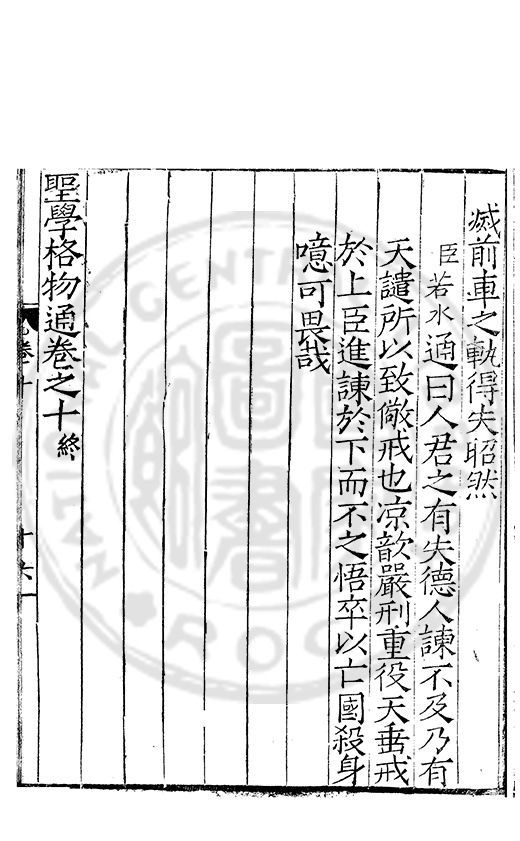 滅前車之軌得失昭然
臣若水通曰人君之有失德人諫不及乃有
天譴所以致儆戒也凉歆嚴刑重役天垂戒
於上臣進諫於下而不之悟卒以亡國殺身
噫可畏哉
聖學格物通卷之十終